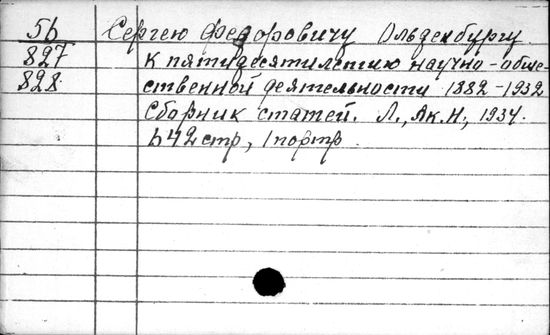 56 Сергею Федоровичу Ольденбургу.
827 К пятидесятилетию научно-обще-
828 ственной деятельности 1882-1932
Сборник статей. Л., Ак.Н., 1934.
642 стр, 1 портр.